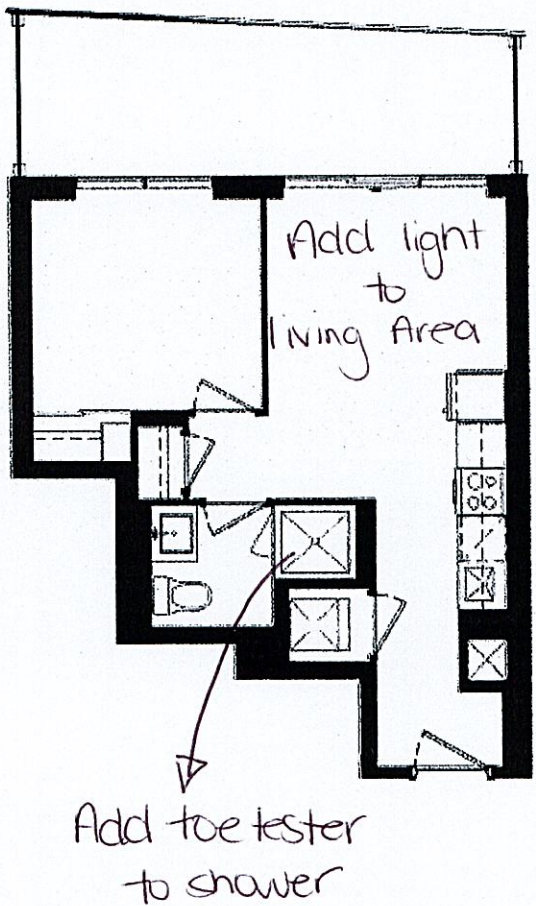 Add light
to
living Area
Add toe tester
to shower